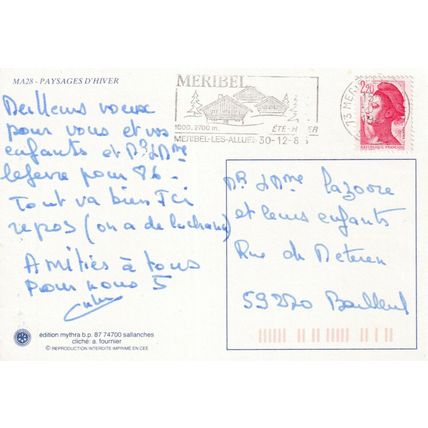 MA28 - PAYSAGES D'HIVER
MERIBEL
1600. 2700 m. ÉTÉ-H ER
MERIBEL-LES-ALLUES 30-12-8
73 MER
2,20
REPUBLIQUE FRANÇAISE
Meilleurs voeux
pour vous et vos
enfants et Mr & Mme
Lefevre pour 86.
Tout va bien Ici
repos (on a de la chance)
Amitiés à tous
pour nous 5
Mr & Mme Lazoore
et leurs enfants
Rue de Meteren
59270 Bailleul
edition mythra b.p. 87 74700 sallanches
cliché: a. fournier
© REPRODUCTION INTERDITE IMPRIMÉ EN CEE